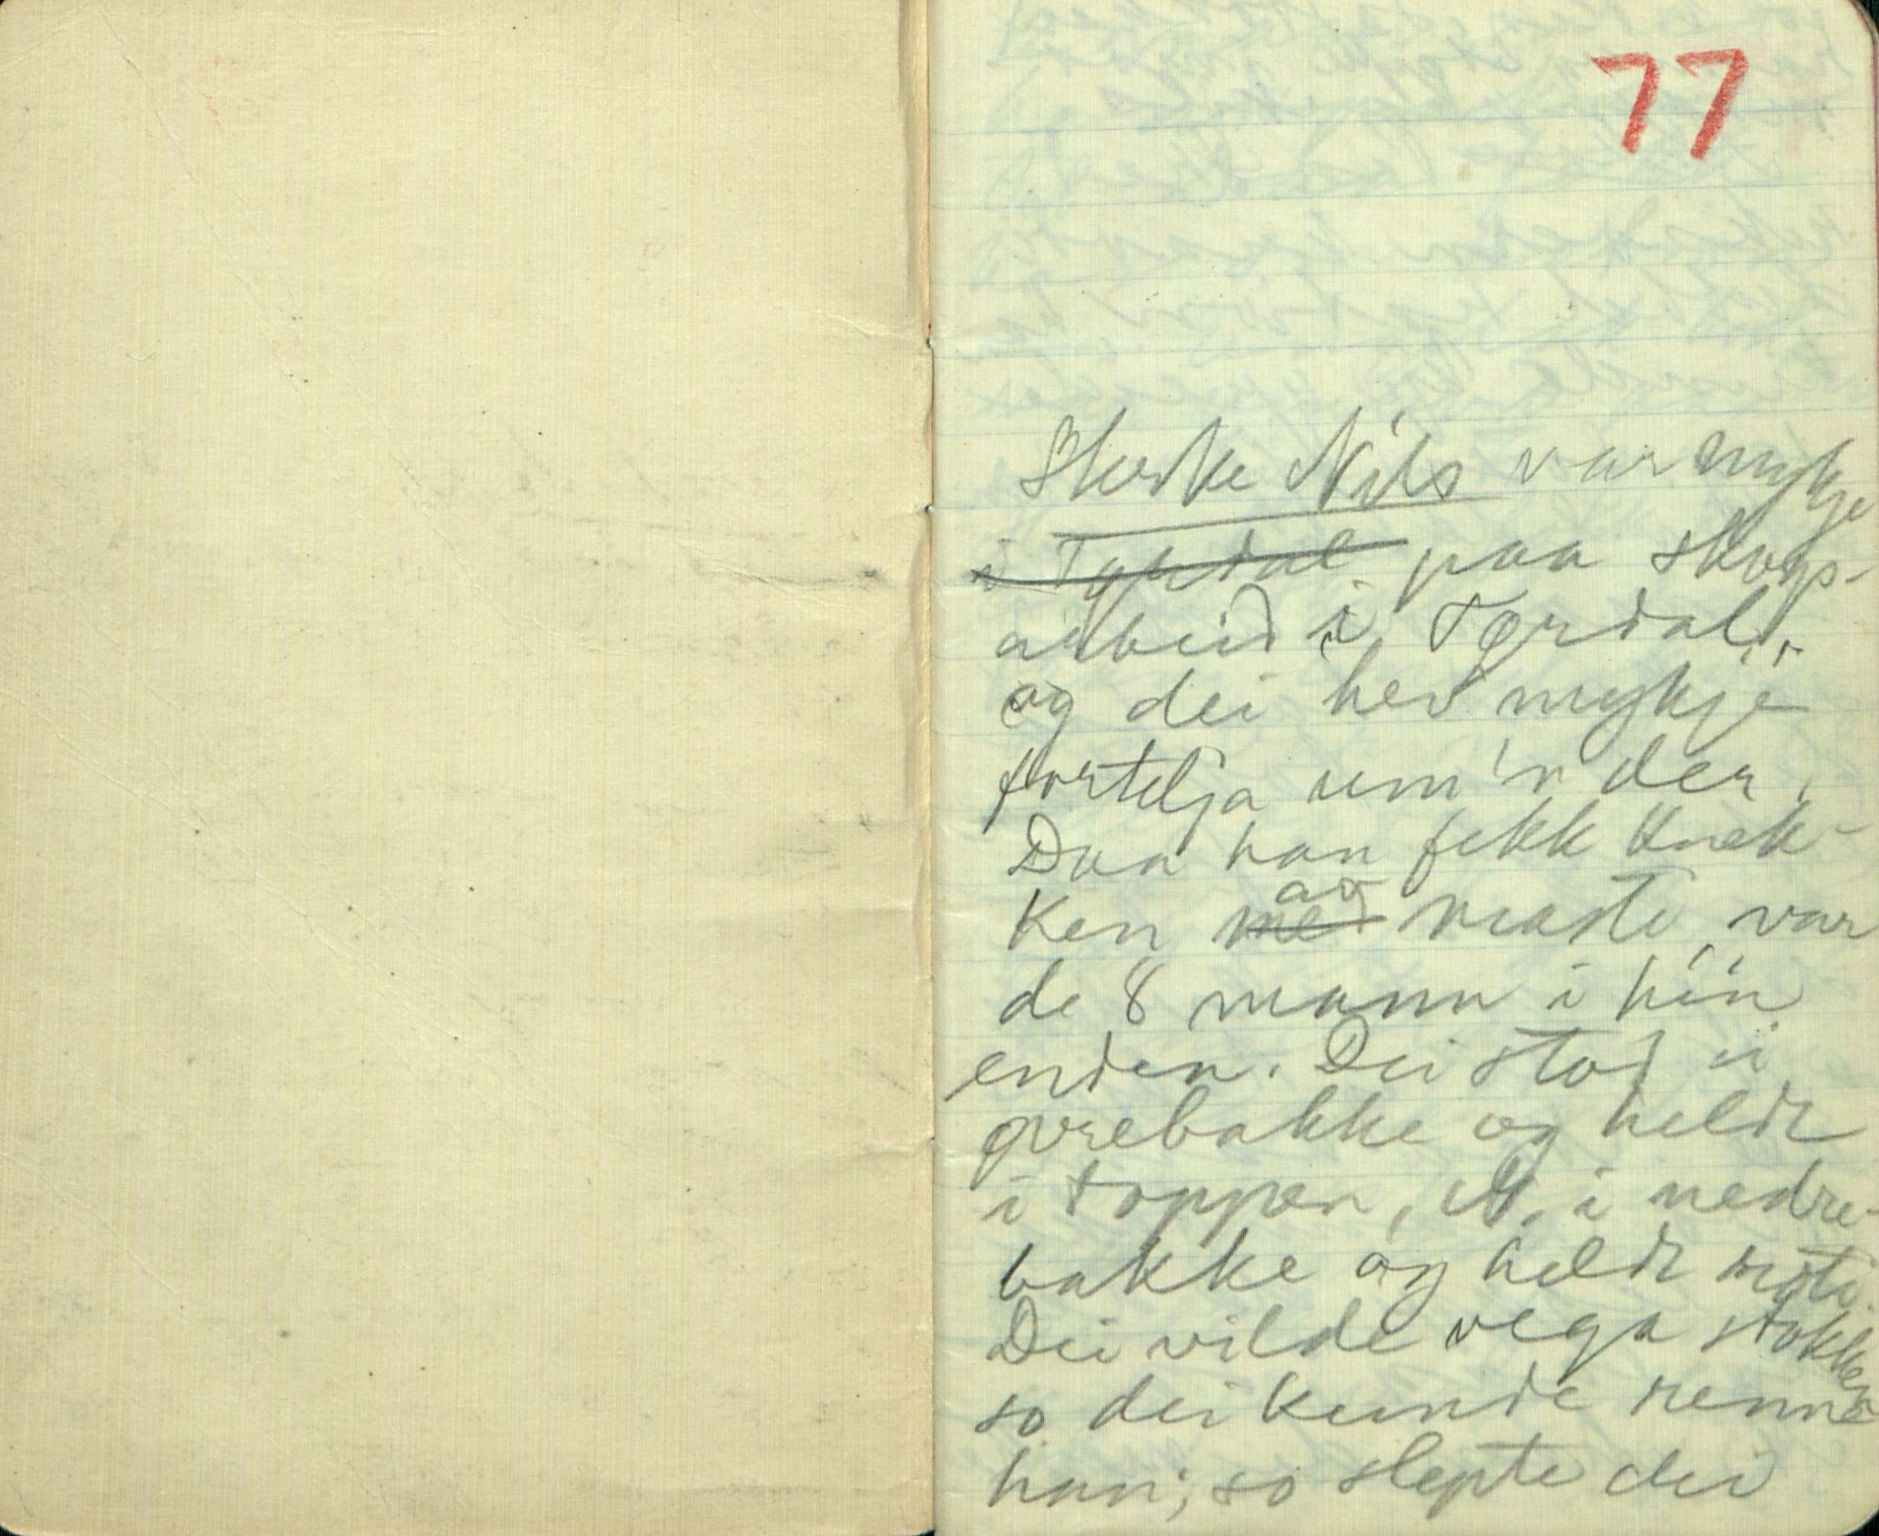 77
Sterke Nils var mykje
i Tørdal paa skogs-
arbeid i Tørdal,
og dei hev mykje
fortelja um'n der.
Daa han fekk knek-
ken med av masti, var
de 8 mann i hin
enden. Dei stod i
øvrebakke og heldt
i toppen, N. i nedre-
bakke og heldt roti.
Dei vilde vega stokken
so dei kunde renne
han; so slepte dei